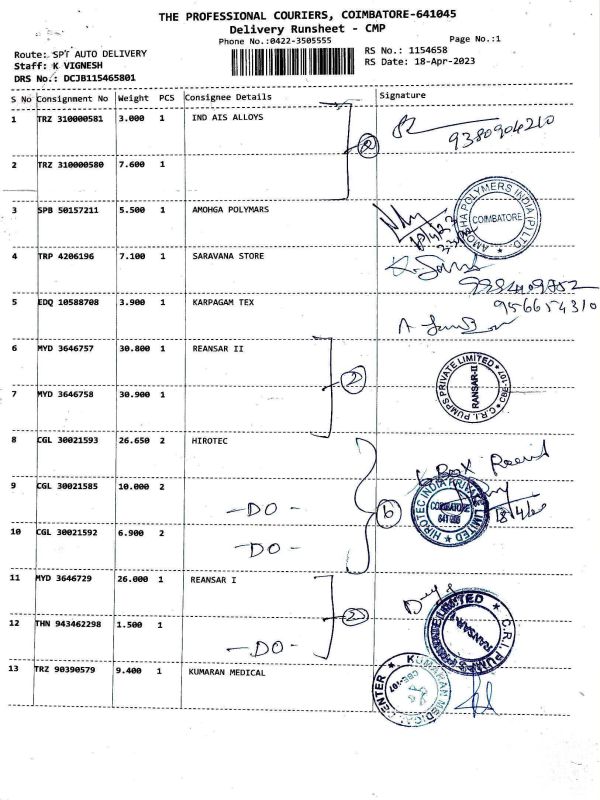 THE PROFESSIONAL COURIERS, COIMBATORE-641045
Delivery Runsheet - CMP
Phone No.:0422-3505555
Page No.:1
Route: SPT AUTO DELIVERY
RS No.: 1154658
Staff: K VIGNESH
RS Date: 18-Apr-2023
DRS No.: DCJB115465801
S No Consignment No Weight PCS Consignee Details Signature
1 TRZ 310000581 3.000 1 IND AIS ALLOYS
9380904210
2
2 TRZ 310000580 7.600 1
3 SPB 50157211 5.500 1 AMOHGA POLYMARS
AMOGHA POLYMERS INDIA (P) LTD
COIMBATORE
4 TRP 4206196 7.100 1 SARAVANA STORE
5 EDQ 10588708 3.900 1 KARPAGAM TEX
956654310
6 MYD 3646757 30.800 1 REANSAR II
2
C.R.I. PUMPS PRIVATE LIMITED
RANSAR-II
CBE-107
7 MYD 3646758 30.900 1
8 CGL 30021593 26.650 2 HIROTEC
6 Box
9 CGL 30021585 10.000 2
- DO -
6
HIROTEC INDIA PRIVATE LIMITED
COIMBATORE
18/4/
10 CGL 30021592 6.900 2
- DO -
11 MYD 3646729 26.000 1 REANSAR I
2
C.R.I. PUMPS PRIVATE LIMITED
RANSAR
12 THN 943462298 1.500 1
- DO -
13 TRZ 90390579 9.400 1 KUMARAN MEDICAL
KUMARAN MEDICAL CENTER
CBE-107